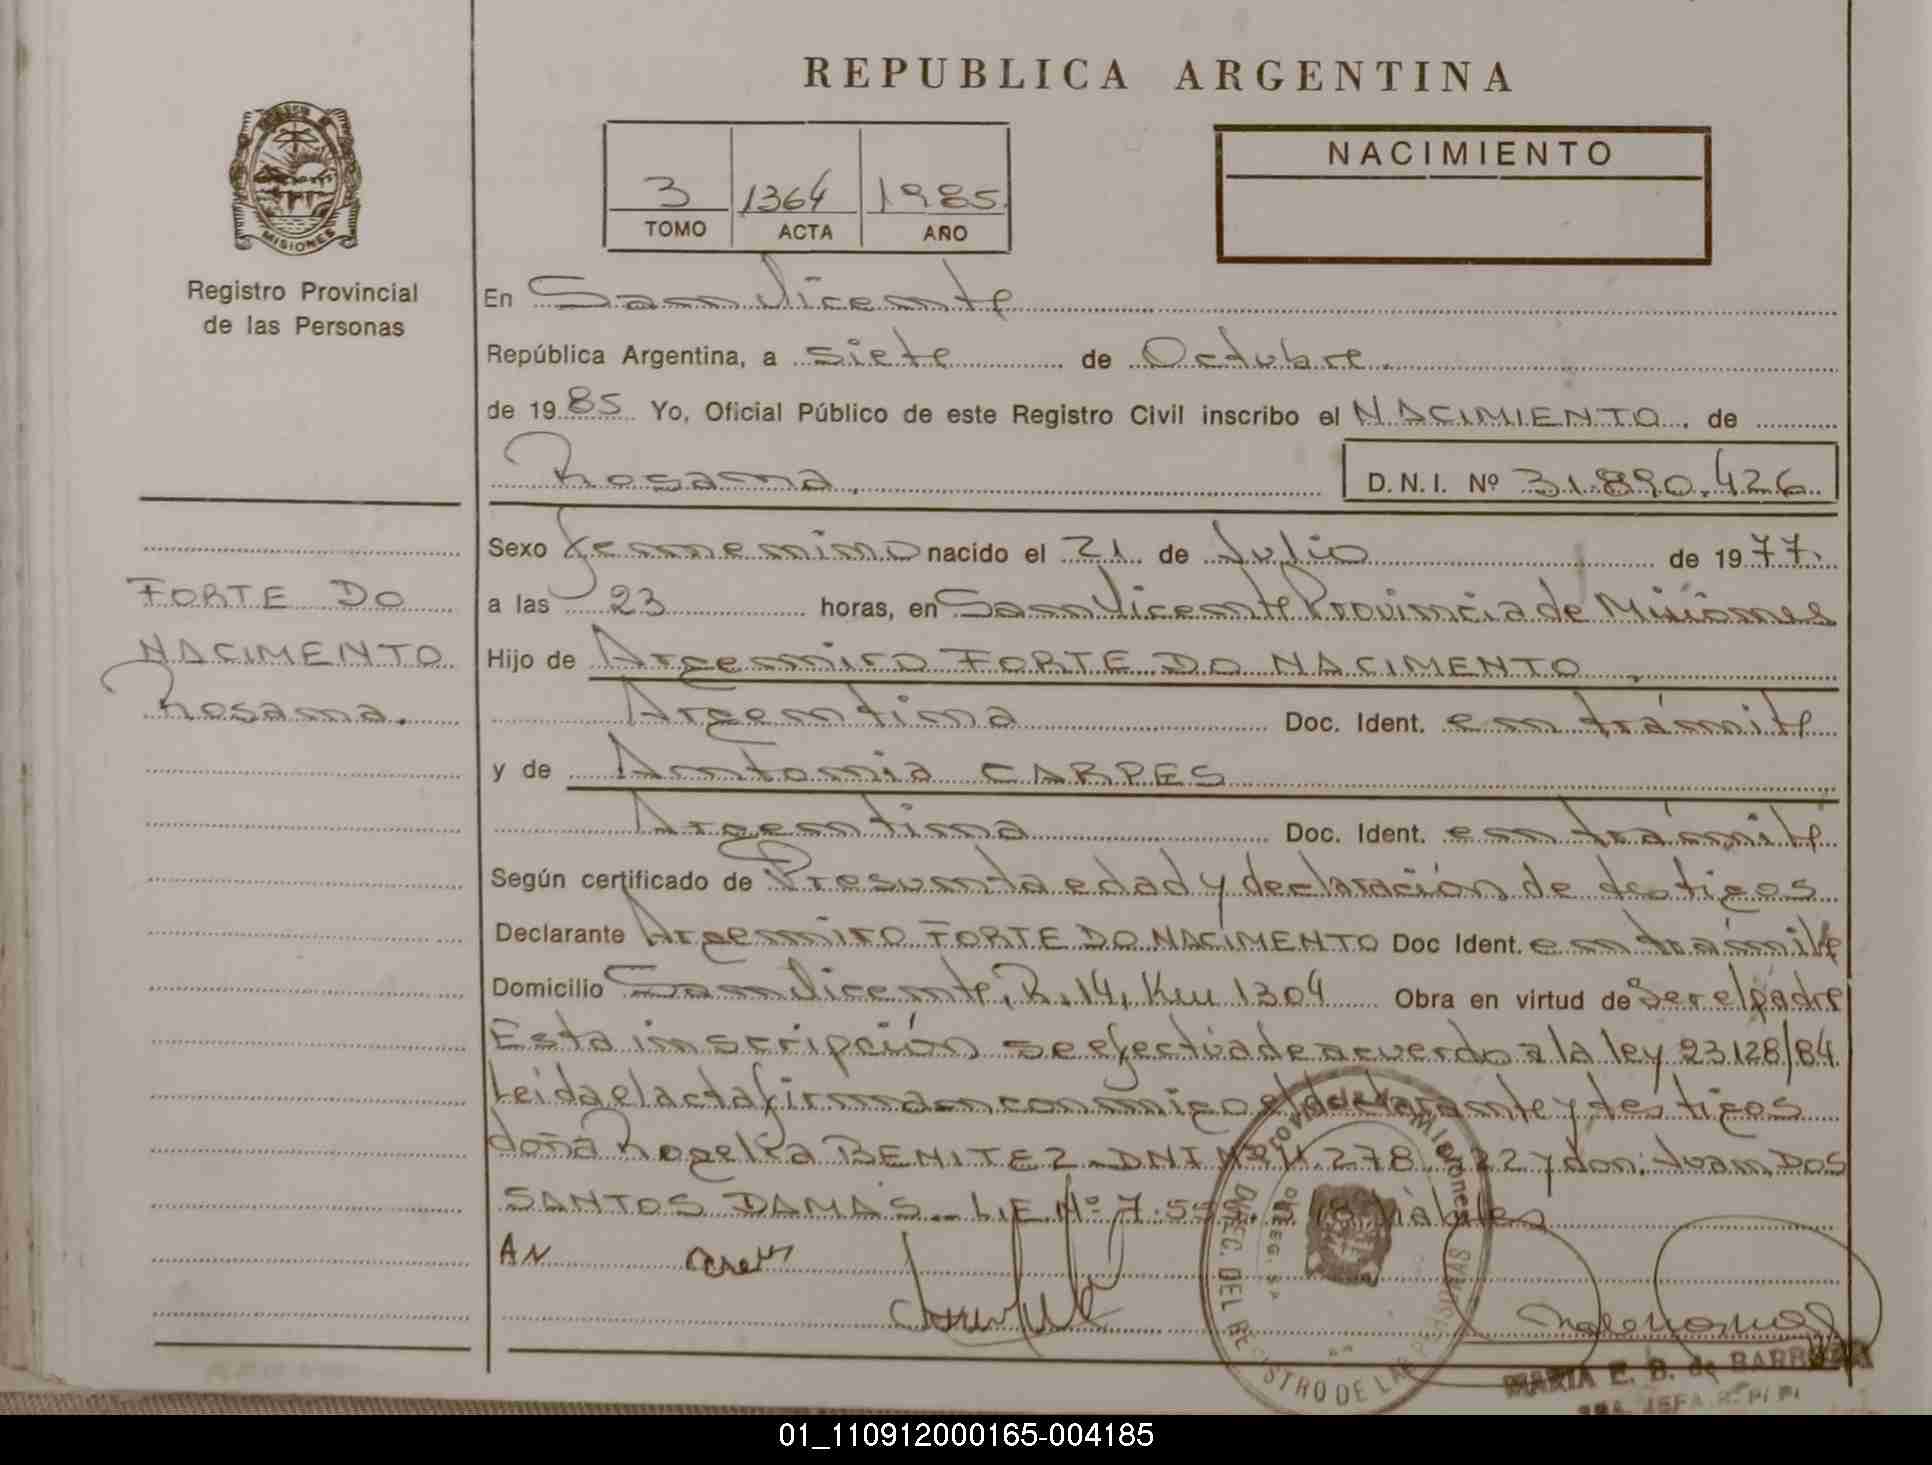 REPUBLICA ARGENTINA
MISIONES
Registro Provincial
de las Personas
3 1364 1985
TOMO ACTA AÑO
NACIMIENTO
En San Vicente
República Argentina, a siete de Octubre
de 1985 Yo, Oficial Público de este Registro Civil inscribo el NACIMIENTO de
Rosana. D.N.I. Nº 31.890.426
FORTE DO
NACIMENTO
Rosana.
Sexo femenino nacido el 21 de Julio de 1977.
a las 23 horas, en San Vicente Provincia de Misiones
Hijo de Argemiro FORTE DO NACIMENTO
Argentina Doc. Ident. en trámite
y de Antonia CARPES
Argentina Doc. Ident. en trámite
Según certificado de Presunta edad y declaración de testigos
Declarante Argemiro FORTE DO NACIMENTO Doc Ident. en trámite
Domicilio San Vicente, R. 14, Km 1304 Obra en virtud de Ser el padre
Esta inscripción se efectúa de acuerdo a la ley 23.128/84
Leída el acta firman conmigo el declarante y testigos
doña Rogelia BENITEZ DNI Nº 278 y don: Juan DOS
SANTOS DAMAS L.E. Nº 7.55
MARIA E. B. de
01_110912000165-004185